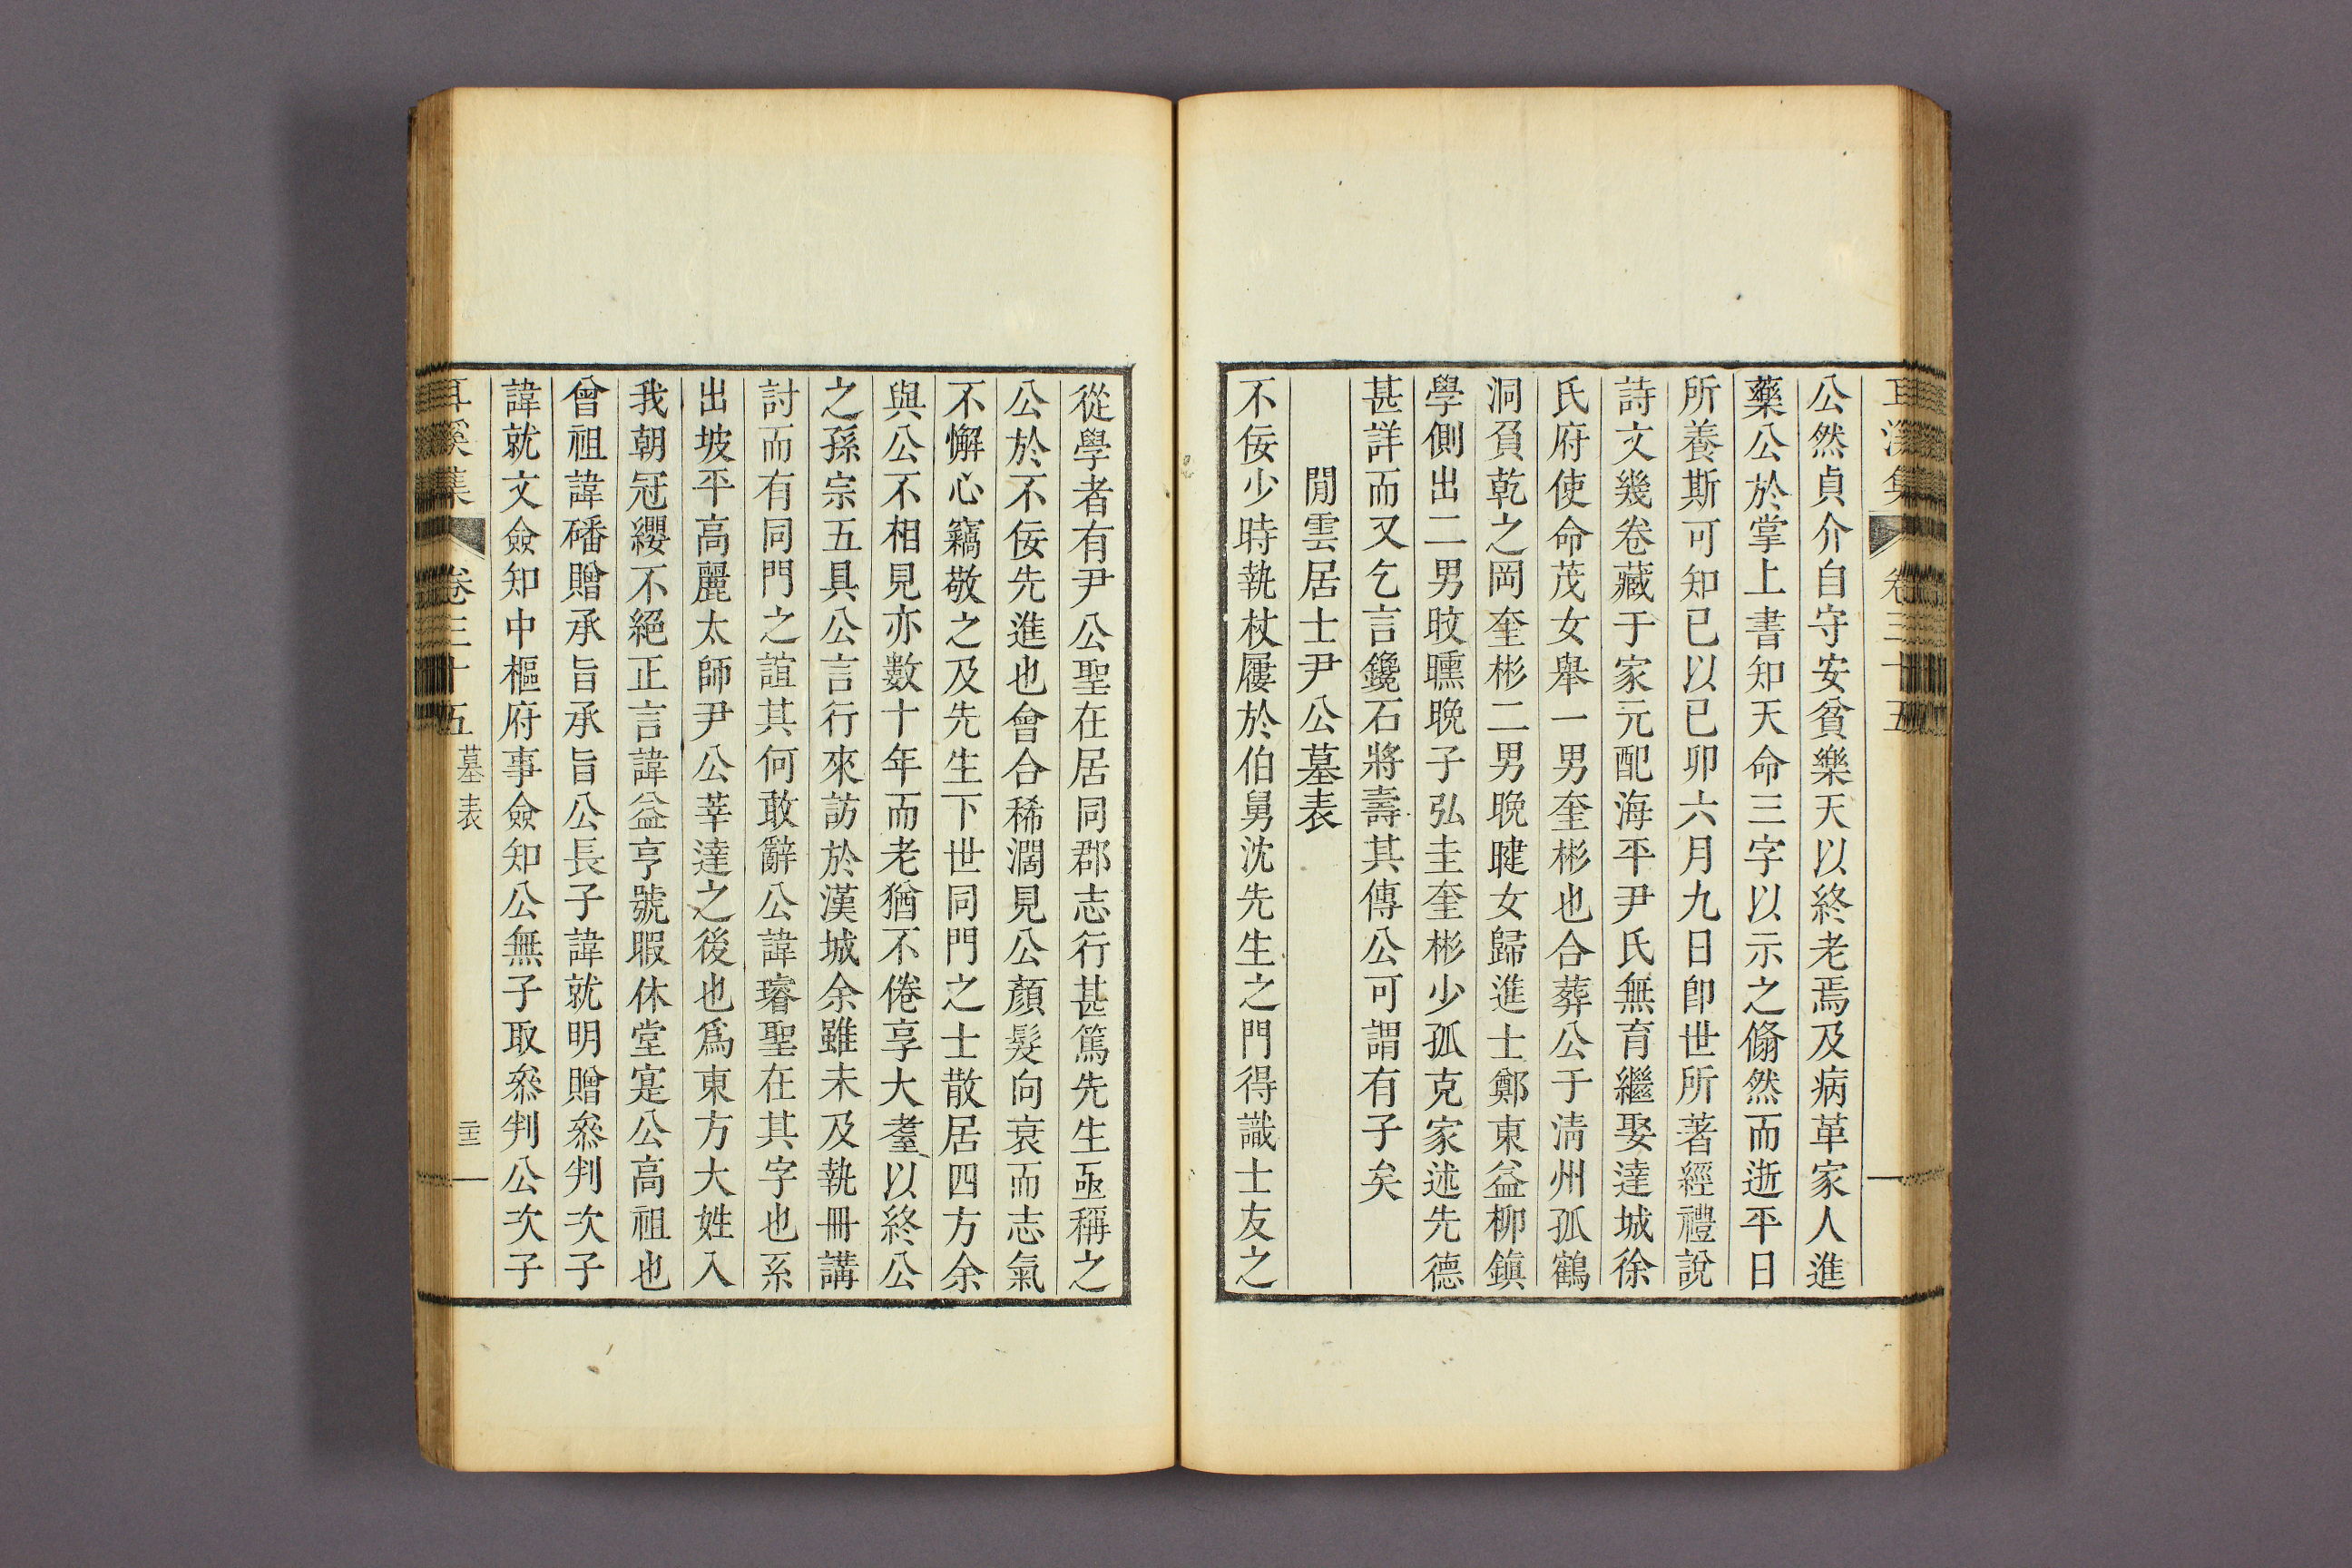 耳溪集 卷三十五
公然貞介自守安貧樂天以終老焉及病革家人進
藥公於掌上書知天命三字以示之翛然而逝平日
所養斯可知已以已卯六月九日卽世所著經禮說
詩文幾卷藏于家元配海平尹氏無育繼娶達城徐
氏府使命茂女舉一男奎彬也合葬公于淸州孤鶴
洞負乾之岡奎彬二男晩睷女歸進士鄭東益柳鎭
學側出二男晈曛晩子弘圭奎彬少孤克家述先德
甚詳而又乞言鑱石將壽其傳公可謂有子矣
閒雲居士尹公墓表
不佞少時執杖屨於伯舅沈先生之門得識士友之
從學者有尹公聖在居同郡志行甚篤先生亟稱之
公於不佞先進也會合稀濶見公顏髮向衰而志氣
不懈心竊敬之及先生下世同門之士散居四方余
與公不相見亦數十年而老猶不倦享大耋以終公
之孫宗五具公言行來訪於漢城余雖未及執冊講
討而有同門之誼其何敢辭公諱璿聖在其字也系
出坡平高麗太師尹公莘達之後也爲東方大姓入
我朝冠纓不絕正言諱益亨號暇休堂寔公高祖也
曾祖諱磻贈承旨承旨公長子諱就明贈叅判次子
諱就文僉知中樞府事僉知公無子取叅判公次子
耳溪集 卷三十五 墓表 二十三